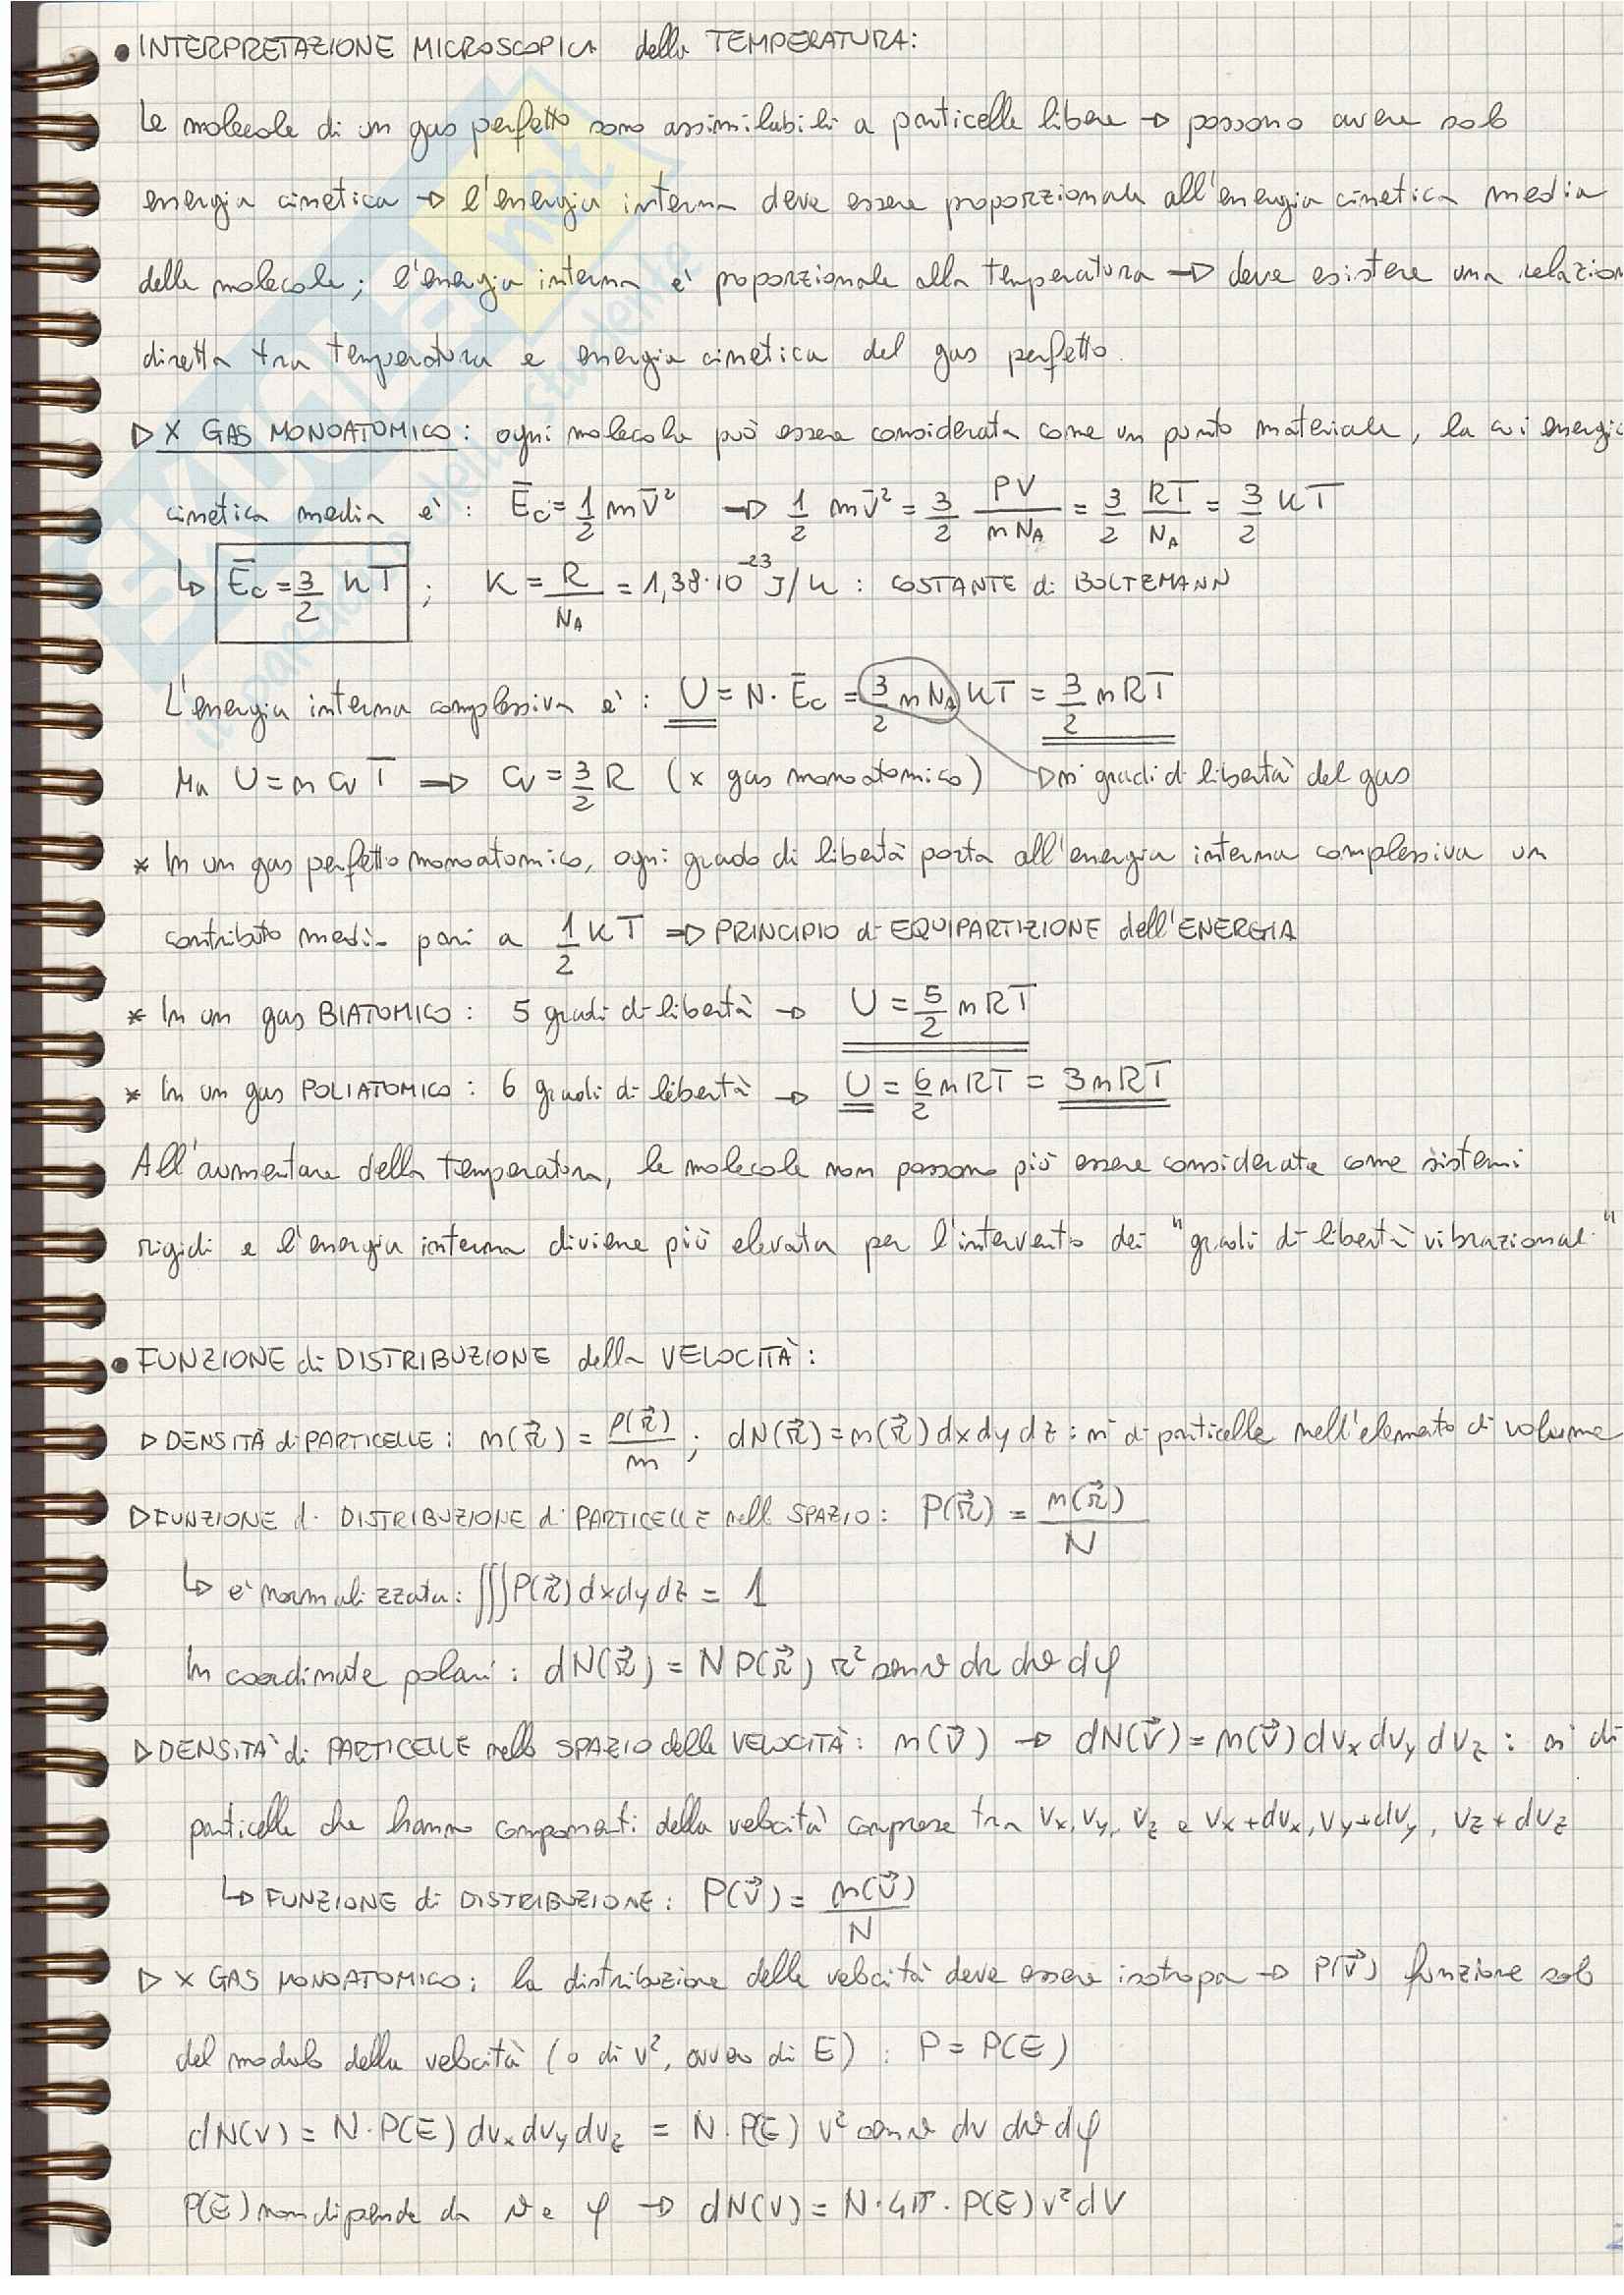 • INTERPRETAZIONE MICROSCOPICA della TEMPERATURA:
Le molecole di un gas perfetto sono assimilabili a particelle libere → possono avere solo
energia cinetica → l'energia interna deve essere proporzionale all'energia cinetica media
delle molecole; l'energia interna è proporzionale alla temperatura → deve esistere una relazion
diretta tra temperatura e energia cinetica del gas perfetto.
▷ X GAS MONOATOMICO: ogni molecola può essere considerata come un punto materiale, la cui energia
cinetica media è: Ēc = 1/2 m v̄² → 1/2 m v̄² = 3/2 PV/(n NA) = 3/2 RT/NA = 3/2 KT
↳ Ēc = 3/2 KT ; K = R/NA = 1,38·10⁻²³ J/K : COSTANTE di BOLTZMANN
L'energia interna complessiva è: U = N·Ēc = 3/2 n NA KT = 3/2 nRT
Ma U = n cv T ⇒ cv = 3/2 R (x gas monoatomico) → n° gradi di libertà del gas
* In un gas perfetto monoatomico, ogni grado di libertà porta all'energia interna complessiva un
contributo medio pari a 1/2 KT ⇒ PRINCIPIO di EQUIPARTIZIONE dell'ENERGIA
* In un gas BIATOMICO: 5 gradi di libertà → U = 5/2 nRT
* In un gas POLIATOMICO: 6 gradi di libertà → U = 6/2 nRT = 3nRT
All'aumentare della temperatura, le molecole non possono più essere considerate come sistemi
rigidi e l'energia interna diviene più elevata per l'intervento dei "gradi di libertà vibrazionali"
• FUNZIONE di DISTRIBUZIONE della VELOCITÀ:
▷ DENSITÀ di PARTICELLE: n(r⃗) = ρ(r⃗)/m ; dN(r⃗) = n(r⃗) dx dy dz : n° di particelle nell'elemento di volume
▷ FUNZIONE di DISTRIBUZIONE di PARTICELLE nello SPAZIO: P(r⃗) = n(r⃗)/N
↳ è normalizzata: ∭P(r⃗) dx dy dz = 1
In coordinate polari: dN(r⃗) = N P(r⃗) r² senϑ dr dϑ dφ
▷ DENSITÀ di PARTICELLE nello SPAZIO delle VELOCITÀ: n(v⃗) → dN(v⃗) = n(v⃗) dvx dvy dvz : n° di
particelle che hanno componenti della velocità comprese tra vx, vy, vz e vx+dvx, vy+dvy, vz+dvz
↳ FUNZIONE di DISTRIBUZIONE: P(v⃗) = n(v⃗)/N
▷ X GAS MONOATOMICO: la distribuzione delle velocità deve essere isotropa → P(v⃗) funzione solo
del modulo della velocità (o di v², ovvero di E) : P = P(E)
dN(v) = N·P(E) dvx dvy dvz = N·P(E) v² senϑ dv dϑ dφ
P(E) non dipende da ϑ e φ → dN(v) = N·4π·P(E) v² dV